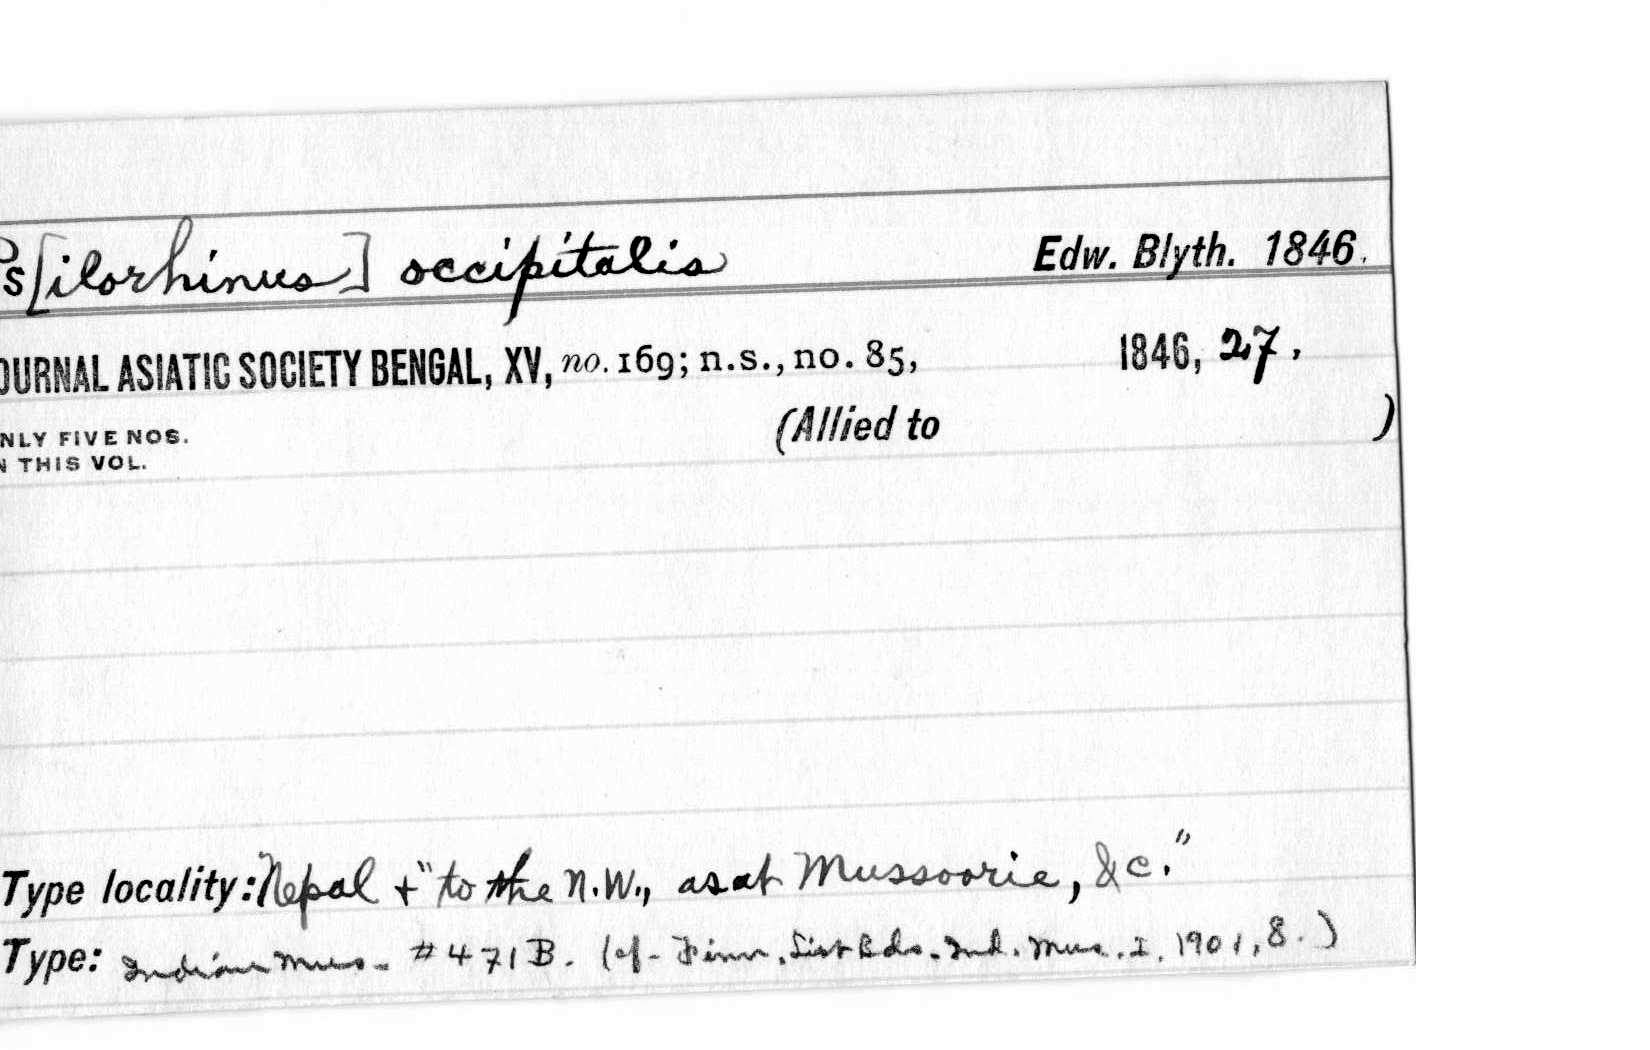 Ps[ilorhinus] occipitalis Edw. Blyth. 1846.
OURNAL ASIATIC SOCIETY BENGAL, XV, no. 169; n.s., no. 85, 1846, 27.
(Allied to )
NLY FIVE NOS.
N THIS VOL.
Type locality: Nepal + "to the N.W., as at Mussoorie, &c."
Type: Indian Mus. #471B. (cf. Finn, List Bds. Ind. Mus. I, 1901, 8.)